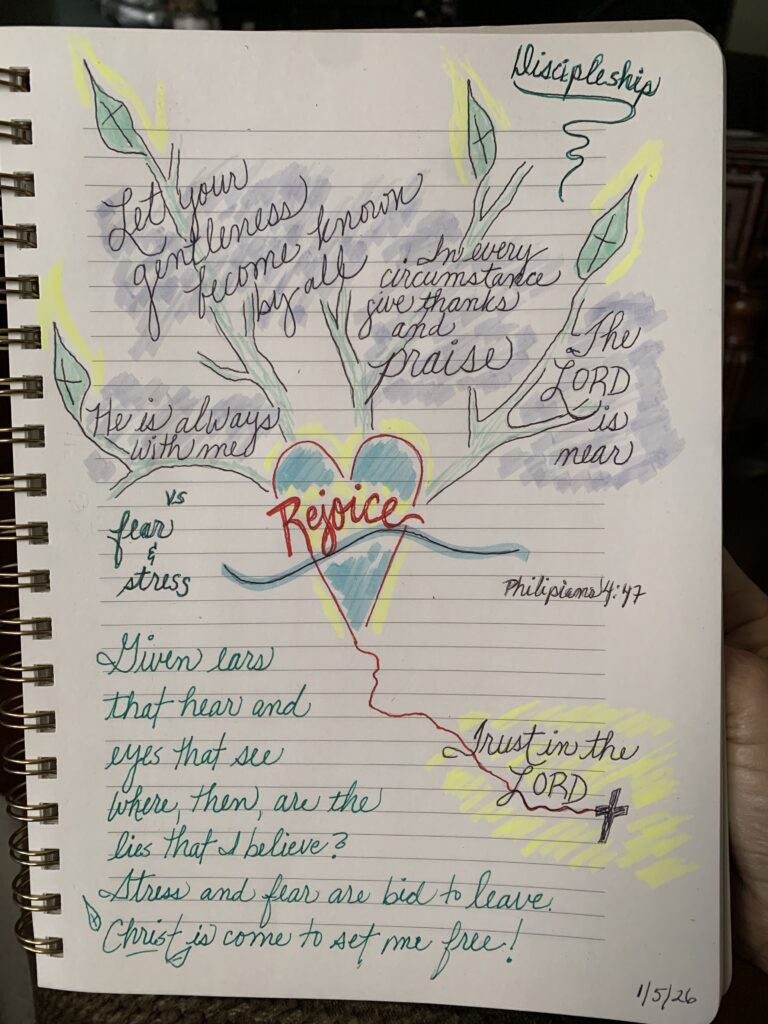 Discipleship
Let your
gentleness
become known
by all
In every
circumstance
give thanks
and
praise
The
LORD
is
near
He is always
with me
vs
fear
&
stress
Rejoice
Philipians 4:4-7
Given ears
that hear and
eyes that see
where, then, are the
lies that I believe?
Stress and fear are bid to leave.
Christ is come to set me free!
Trust in the
LORD
1/5/26